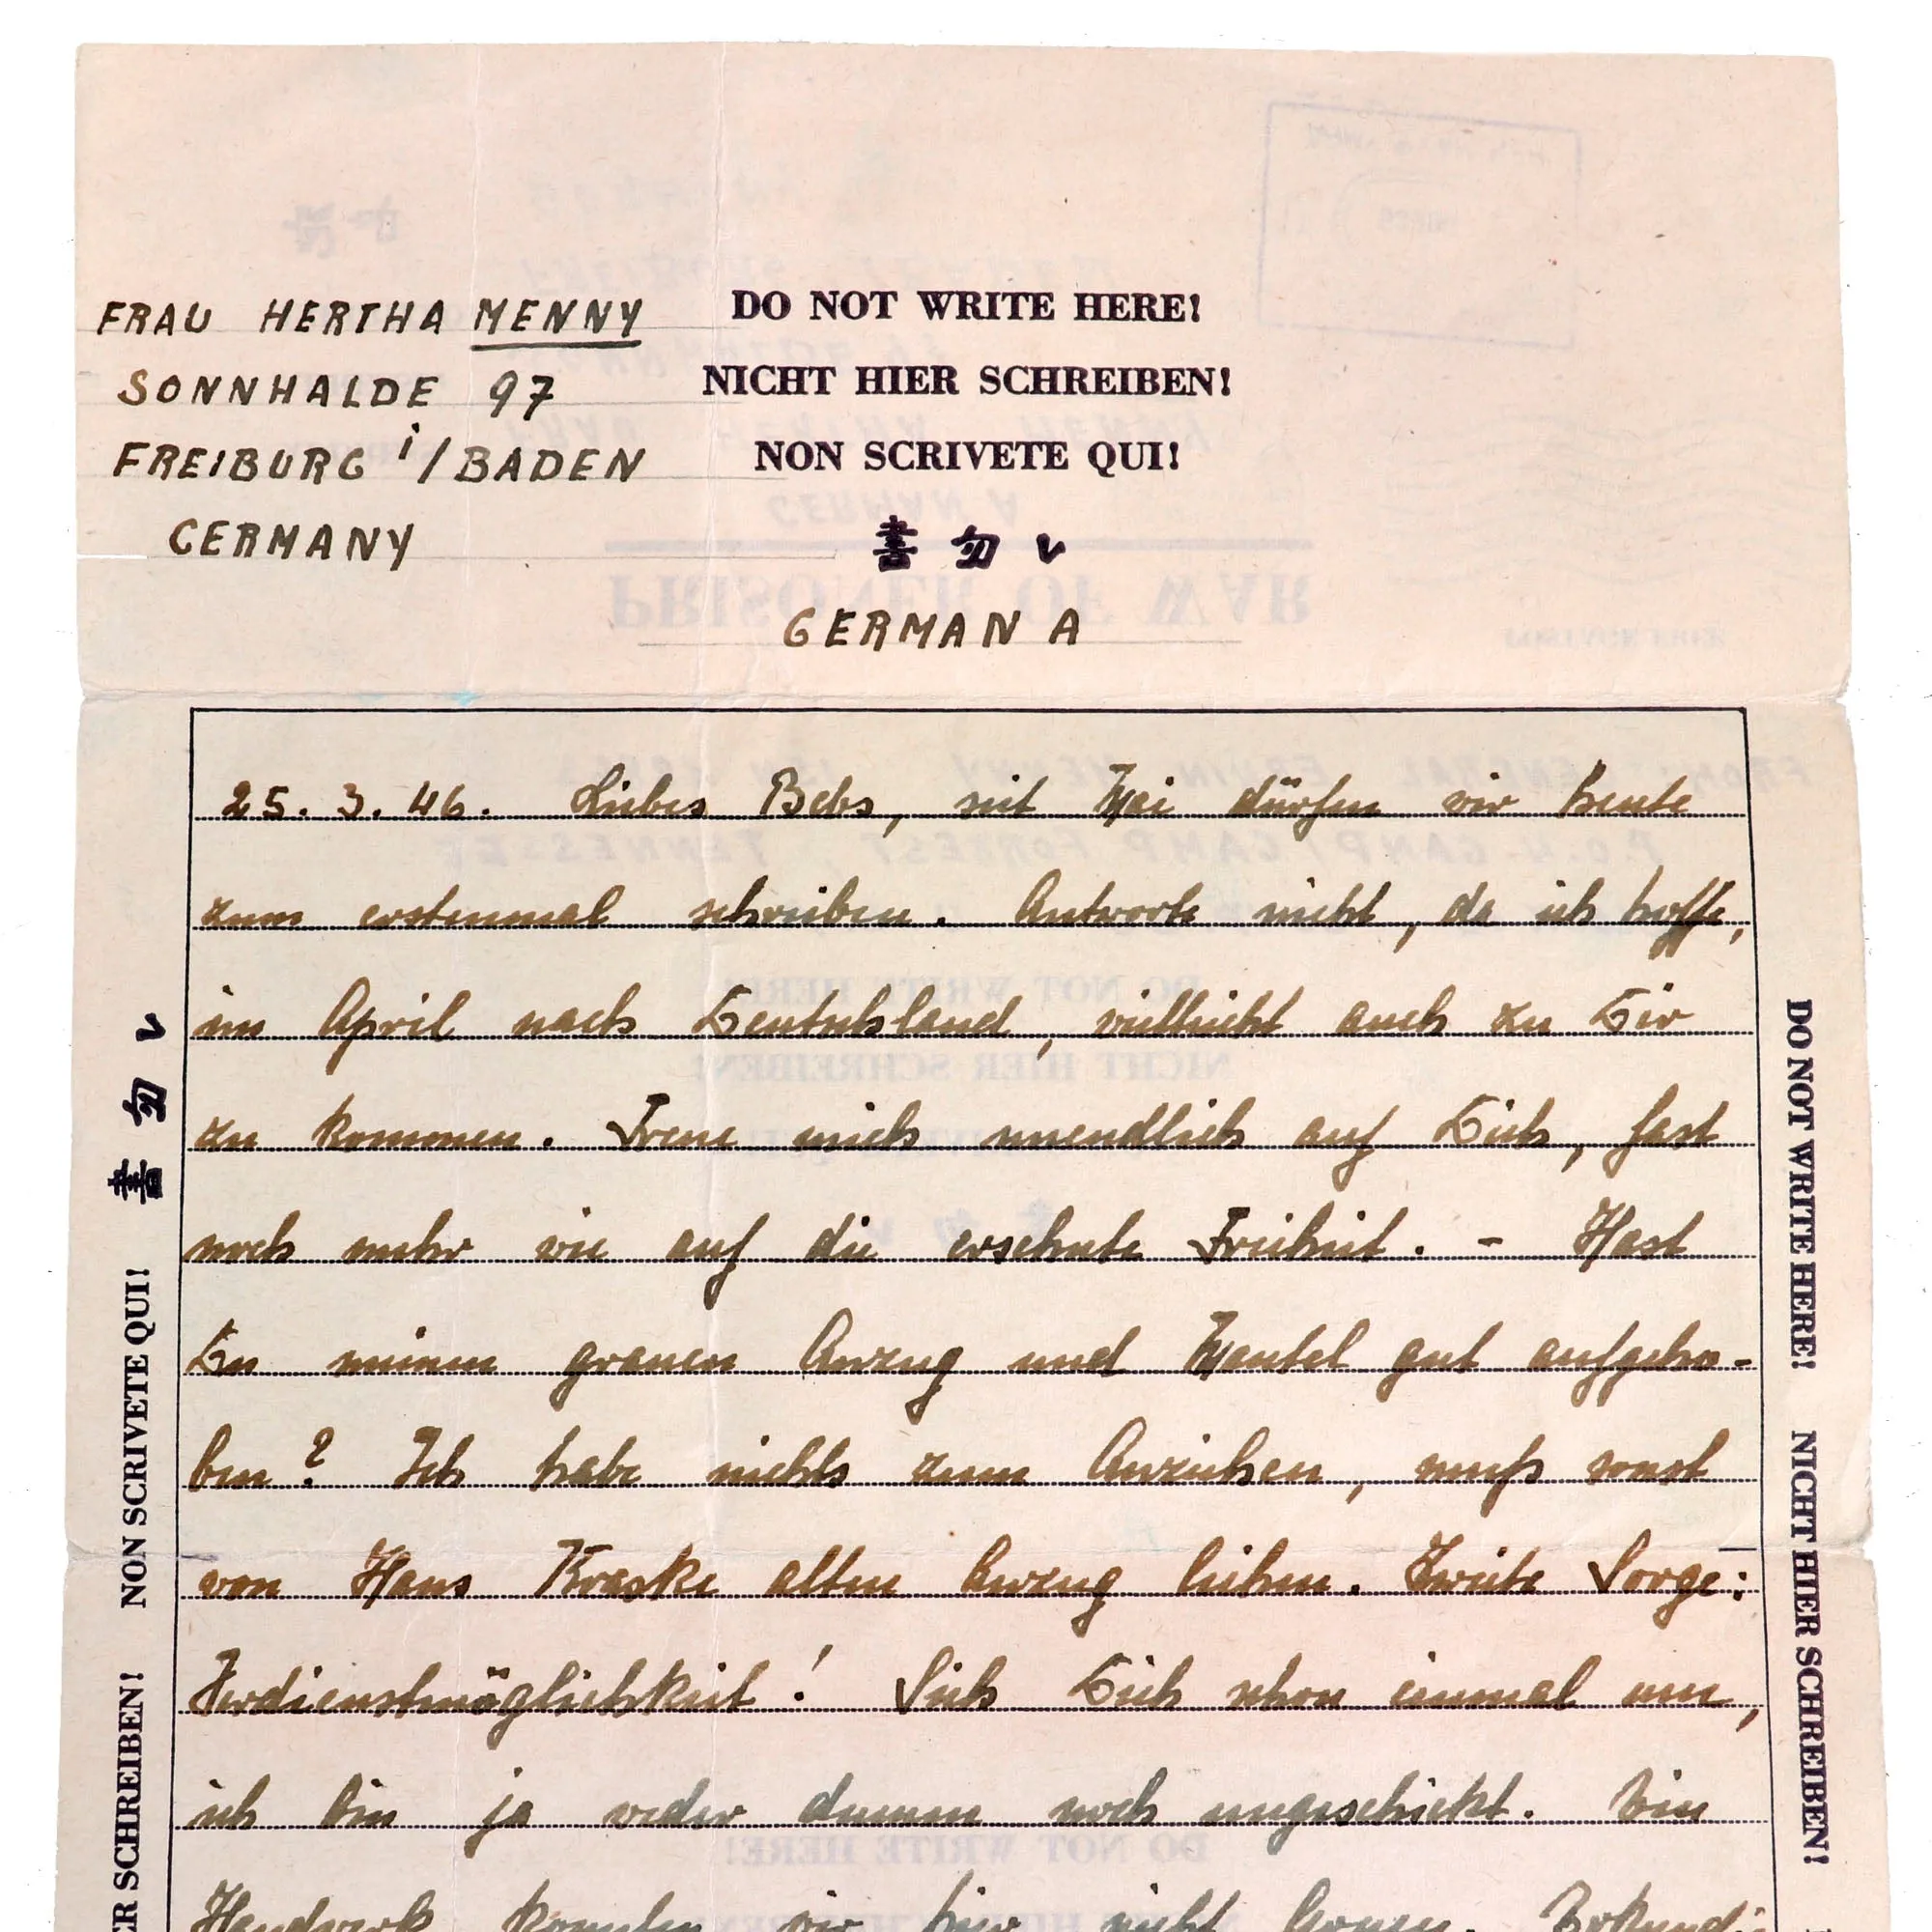 FRAU HERTHA MENNY
SONNHALDE 97
FREIBURG i/BADEN
GERMANY
DO NOT WRITE HERE!
NICHT HIER SCHREIBEN!
NON SCRIVETE QUI!
書勿レ
GERMAN A
25. 3. 46. Liebes Bebs, seit Mai dürfen wir heute
zum erstenmal schreiben. Antworte nicht, da ich hoffe,
im April nach Deutschland, vielleicht auch zu Dir
zu kommen. Freue mich unendlich auf Dich, fast
noch mehr wie auf die ersehnte Freiheit. - Hast
Du meinen grauen Anzug und Mantel gut aufgeho-
ben? Ich habe nichts zum Anziehen, muß sonst
von Hans Kraske alten Anzug leihen. Zweite Sorge:
Verdienstmöglichkeit! Sieh Dich schon einmal um,
ich bin ja weder dumm noch ungeschickt. Ein
Handwerk konnten wir hier nicht lernen. Erkundi
書勿レ
NON SCRIVETE QUI!
ER SCHREIBEN!
DO NOT WRITE HERE!
NICHT HIER SCHREIBEN!
FROM: GENERAL ERWIN MENNY
P.O.W.-CAMP: CAMP FORREST, TENNESSEE
PRISONER OF WAR